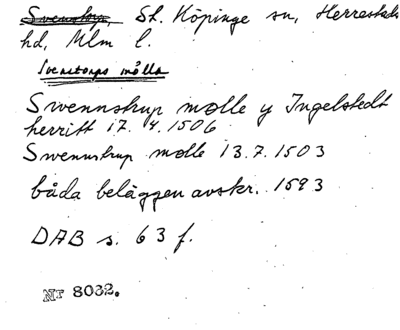 Svenstorp, St. Köpinge sn, Herrestads
hd, Mlm l.
Svenstorps mölla
Swennstrup mølle y Ingelstedt
herritt 17. 4. 1506
Swennstrup mølle 13.7.1503
båda beläggen avskr. 1593
DAB s. 63 f.
Nr 8032.